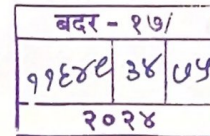 बदर - १७/
११६४९ ३४ ७५
२०२४